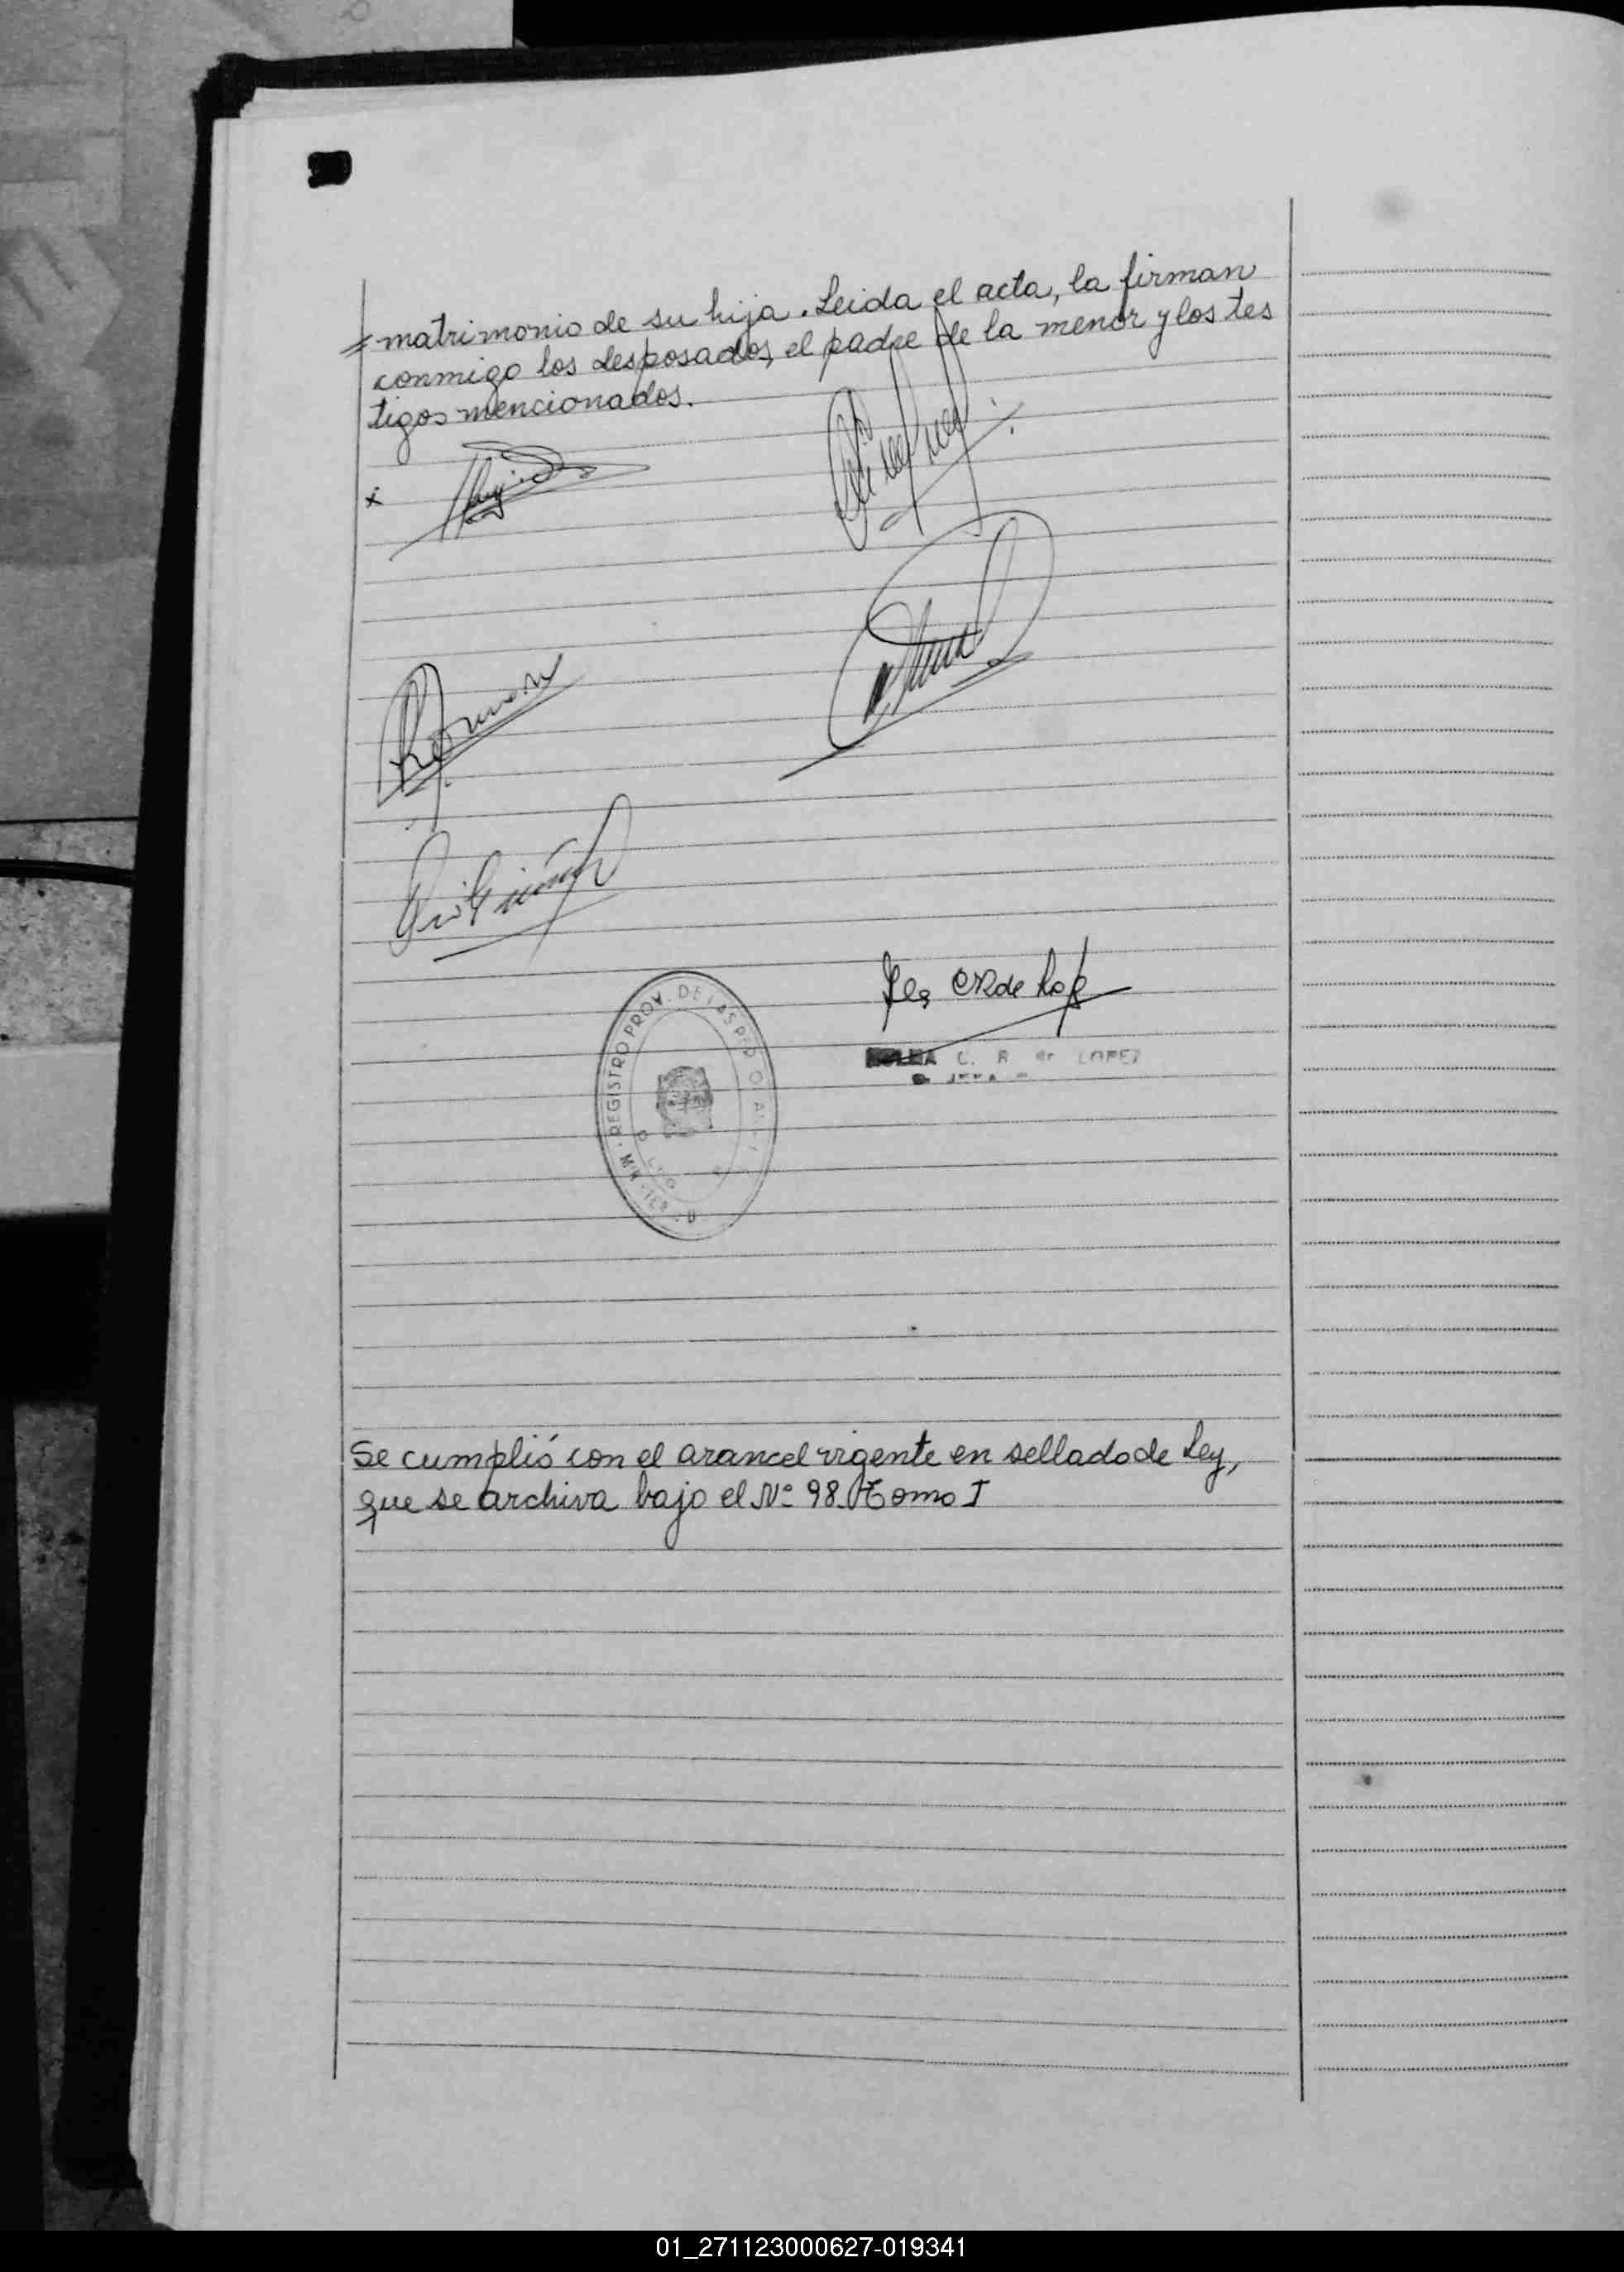 matrimonio de su hija. Leida el acta, la firman
conmigo los desposados, el padre de la menor y los tes
tigos mencionados.
x
REGISTRO PROV. DE LAS PER
C. R. de LOPEZ
JEFA
Se cumplió con el arancel vigente en sellado de Ley,
que se archiva bajo el Nº 98. Tomo I
01_271123000627-019341